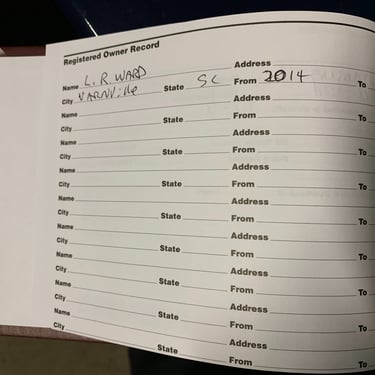 Registered Owner Record
Name L. R. WARD Address
City VARNVille State SC From 2014 To
Name Address
City State From To
Name Address
City State From To
Name Address
City State From To
Name Address
City State From To
Name Address
City State From To
Name Address
City State From To
Name Address
City State From To
Name Address
City State From To